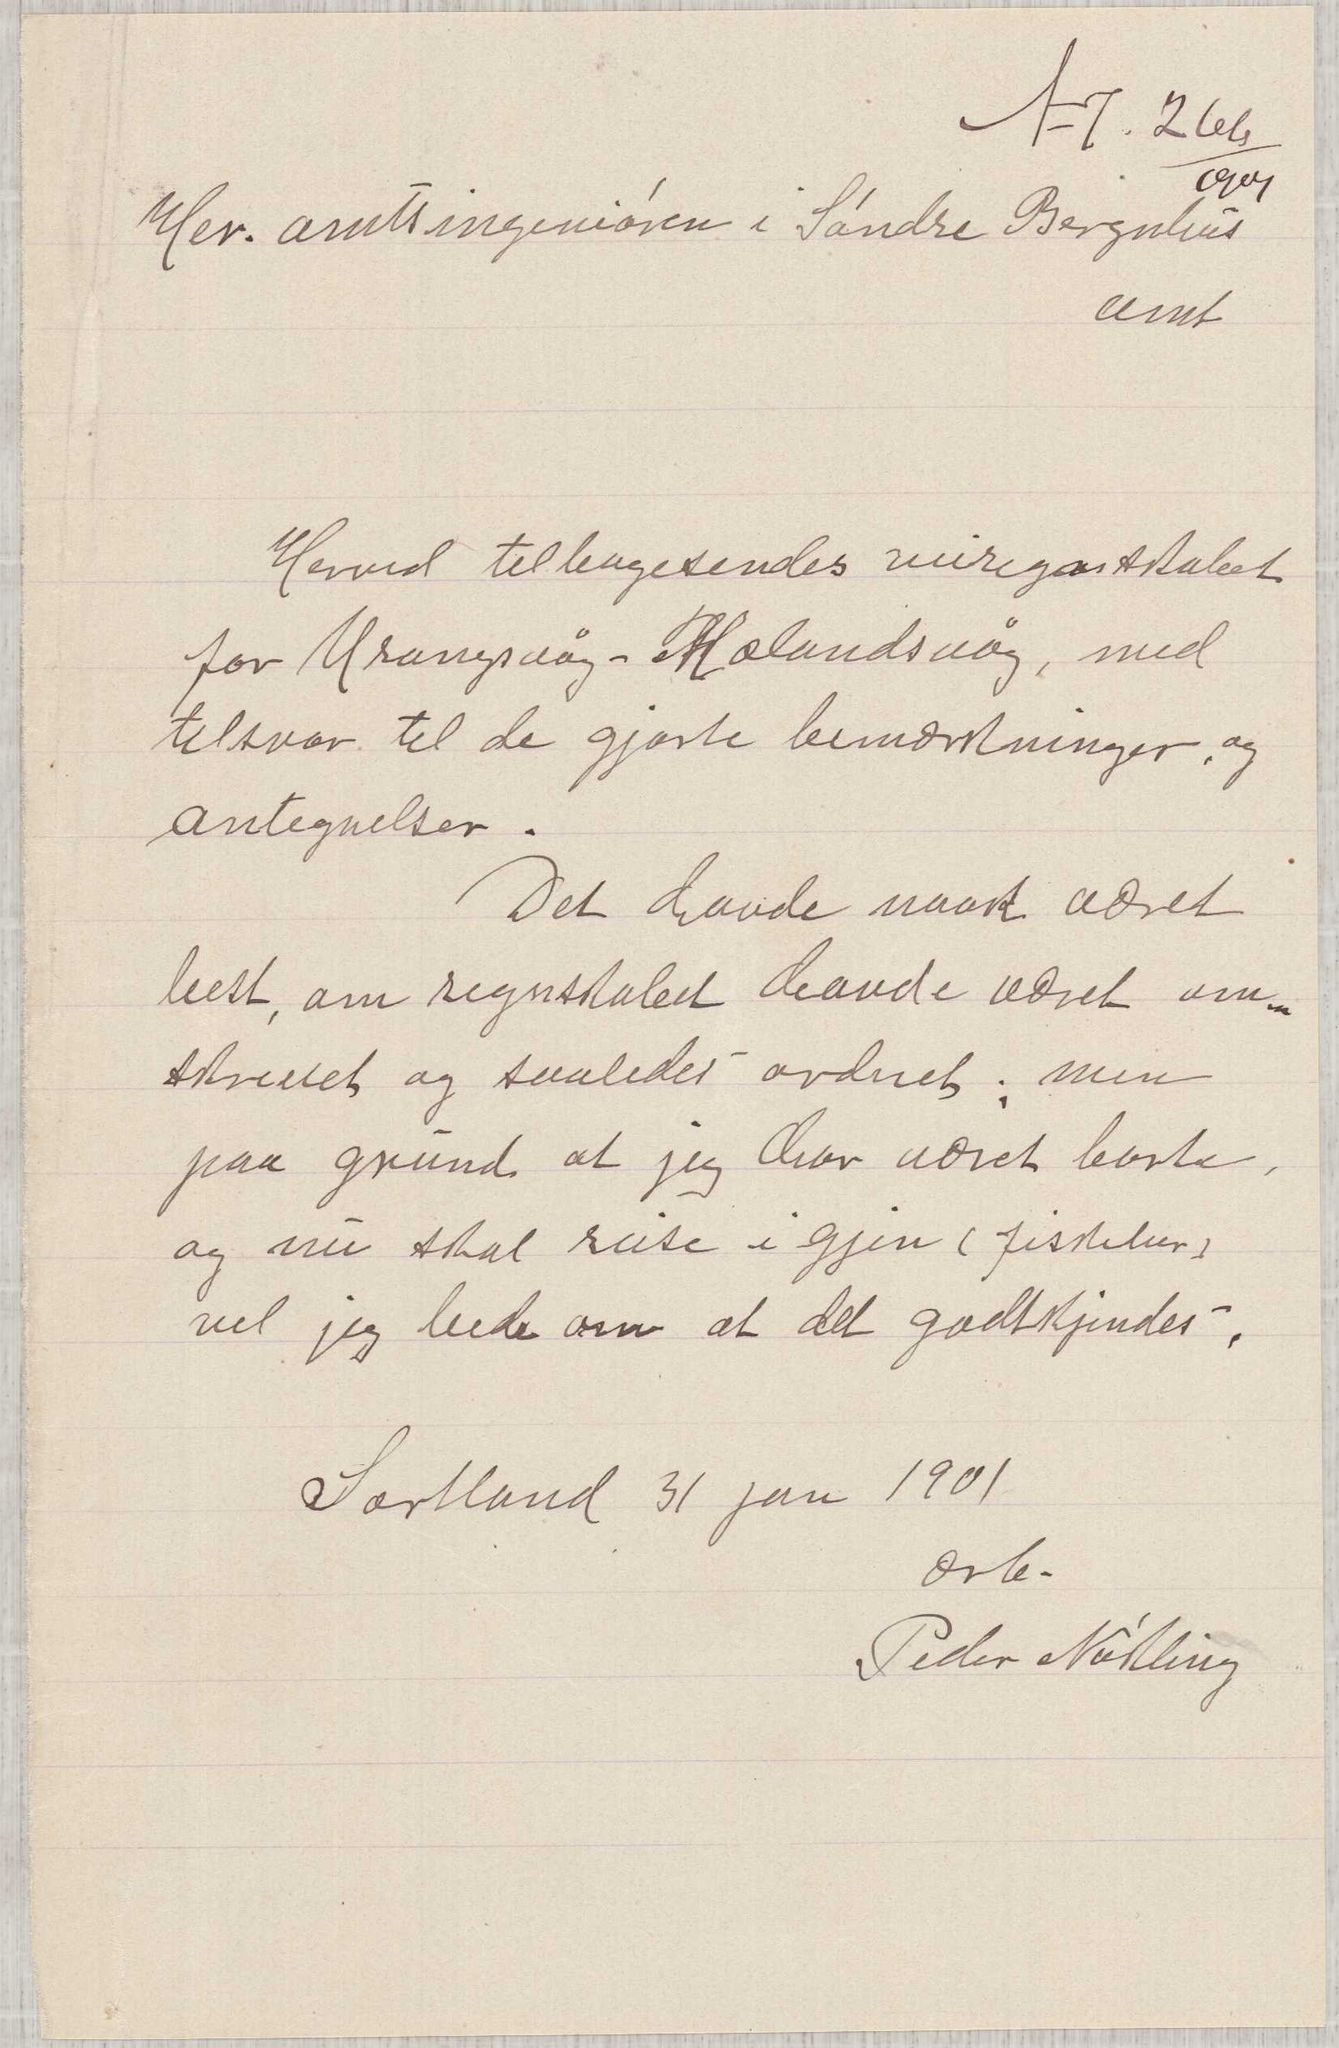 Her. amtsingeniøren i Søndre Bergnhus
amt
Herved telbagesendes veiregnskabet
for Urangsvåg - Mælandsvåg, med
telsvar til de gjorte bemærkninger, og
antegnelser.
Det havde nook været
best, om regnskabet havde været om-
skrevet og saaledes ordnet; men
paa grund at jeg har været borte,
og nu skal reise i gjen (fiskeber)
vel jeg bede om at det godtkjendes.
Sortland 31 jan 1901
ærb.
Peder Nøkling